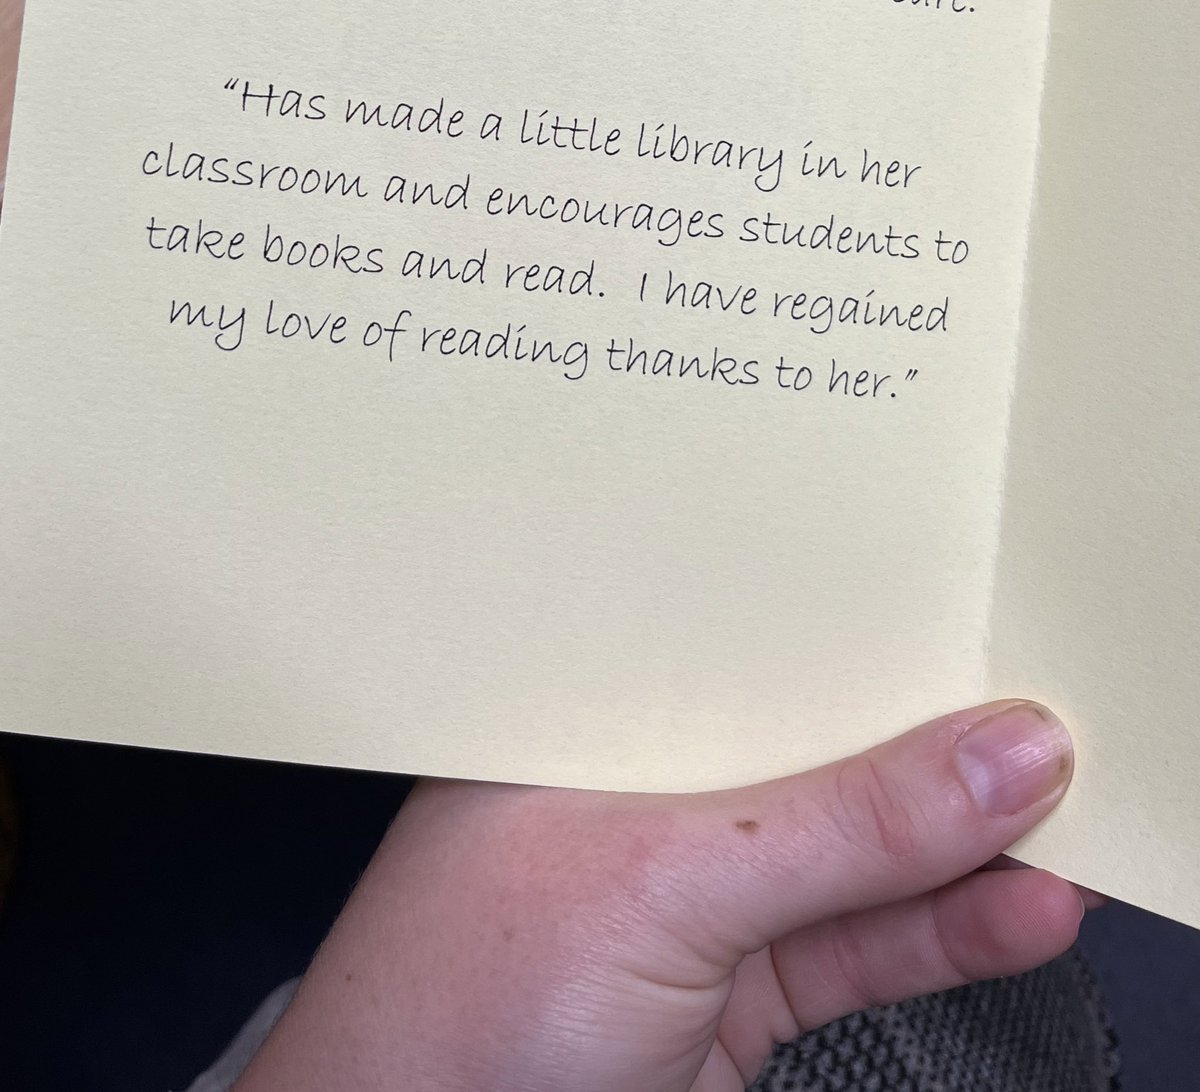 "Has made a little library in her
classroom and encourages students to
take books and read. I have regained
my love of reading thanks to her."